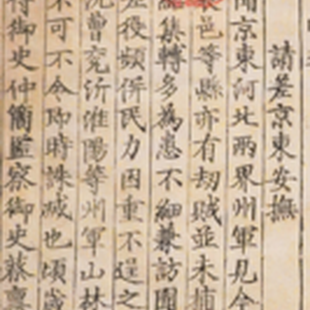 請差京東安撫
聞京東河北兩界州軍見今
邑等縣亦有劫賊並未捕
集轉多為患不細兼訪聞
差役頻併民力因重不逞之
況曹兗沂淮陽等州軍山林
不可不令即時誅滅也頃歲
御史仲簡監察御史蔡稟